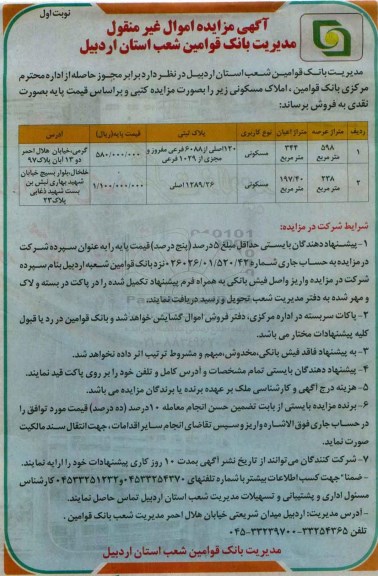 نوبت اول
آگهی مزایده اموال غیر منقول
مدیریت بانک قوامین شعب استان اردبیل
مدیریت بانک قوامین شعب استان اردبیل در نظر دارد برابر مجوز حاصله از اداره محترم
مرکزی بانک قوامین ، املاک مسکونی زیر را بصورت مزایده کتبی و براساس قیمت پایه بصورت
نقدی به فروش برساند:
ردیف متراژ عرصه متراژ اعیان نوع کاربری پلاک ثبتی قیمت پایه(ریال) آدرس
۱ ۵۹۸ متر مربع ۳۳۴ متر مربع مسکونی ۱۲۰اصلی از۶۰۸۸ فرعی مفروز و مجزی از ۱۰۲۹ فرعی ۵۸۰/۰۰۰/۰۰۰ گرمی،خیابان هلال احمر دو ۱۳ آبان پلاک۹۷
۲ ۲۲۸ متر مربع ۱۹۷/۴۰ متر مربع مسکونی ۱۲۸۹/۲۶ اصلی ۱/۱۰۰/۰۰۰/۰۰۰ خلخال،بلوار بسیج خیابان شهید بهاری نبش بن بست شهید ذغابی پلاک۲۲
شرایط شرکت در مزایده:
۱- پیشنهاد دهندگان بایستی حداقل مبلغ ۵ درصد (پنج درصد) قیمت پایه را به عنوان سپرده شرکت
در مزایده به حساب جاری شماره ۰۲۶۰۲۶/۰۱/۵۲۰/۴۳ نزد بانک قوامین شعبه اردبیل بنام سپرده
شرکت در مزایده واریز واصل فیش بانکی به همراه فرم پیشنهاد تکمیل شده را در پاکت در بسته و لاک
و مهر شده به دفتر مدیریت شعب تحویل و رسید دریافت نمایند.
۲- پاکات سربسته در اداره مرکزی، دفتر فروش اموال گشایش خواهد شد و بانک قوامین در رد یا قبول
کلیه پیشنهادات مختار می باشد.
۳- به پیشنهاد فاقد فیش بانکی،مخدوش،مبهم و مشروط ترتیب اثر داده نخواهد شد.
۴- پیشنهاد دهندگان بایستی تمام مشخصات و آدرس کامل و تلفن خود را بر روی پاکت قید نمایند.
۵- هزینه درج آگهی و کارشناسی ملک بر عهده برنده یا برندگان مزایده می باشد.
۶- برنده مزایده بایستی از بابت تضمین حسن انجام معامله ۱۰درصد (ده درصد) قیمت مورد توافق را
در حساب جاری فوق الاشاره واریز و سپس تقاضای انجام سایر اقدامات، جهت انتقال سند مالکیت
صورت نماید.
۷- شرکت کنندگان می توانند از تاریخ نشر آگهی بمدت ۱۰ روز کاری پیشنهادات خود را ارایه نمایند.
- ضمنا" جهت کسب اطلاعات بیشتر با شماره تلفنهای ۰۴۵۳۳۲۵۴۳۷۰ و ۰۴۵۳۳۲۵۱۲۳۲ کارشناس
مسئول اداری و پشتیبانی و تسهیلات مدیریت شعب استان اردبیل تماس حاصل نمایند.
- آدرس مدیریت: اردبیل میدان شریعتی خیابان هلال احمر مدیریت شعب بانک قوامین .
تلفن ۳۳۲۵۴۳۶۵-۳۳۲۳۹۷۰۰-۰۴۵
مدیریت بانک قوامین شعب استان اردبیل